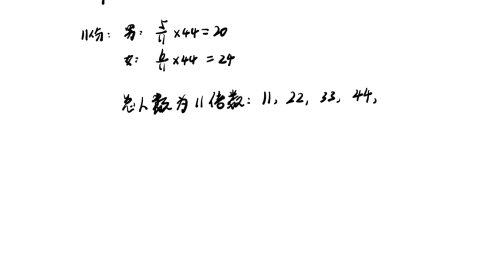 11份: 男: 5/11 ×44=20
女: 6/11 ×44 =24
总人数为11倍数: 11, 22, 33, 44,